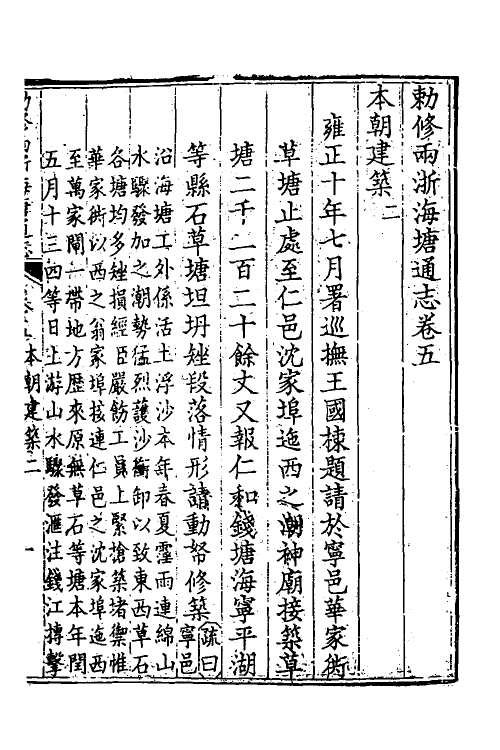 勅修兩浙海塘通志卷五
本朝建築二
雍正十年七月署巡撫王國棟題請於寧邑華家衖
草塘止處至仁邑沈家埠迤西之潮神廟接築草
塘二千二百二十餘丈又報仁和錢塘海寧平湖
等縣石草塘坦坍矬段落情形請動帑修築疏曰寧邑
沿海塘工外係活土浮沙本年春夏霪雨連綿山
水驟發加之潮勢猛烈護沙衝卸以致東西草石
各塘均多矬損經臣嚴飭工員上緊搶築堵禦惟
華家衖以西之翁家埠接連仁邑之沈家埠迤西
至萬家閘一帶地方歷來原無草石等塘本年閏
五月十三四等日上游山水驟發滙注錢江摶擊
本朝建築二 一